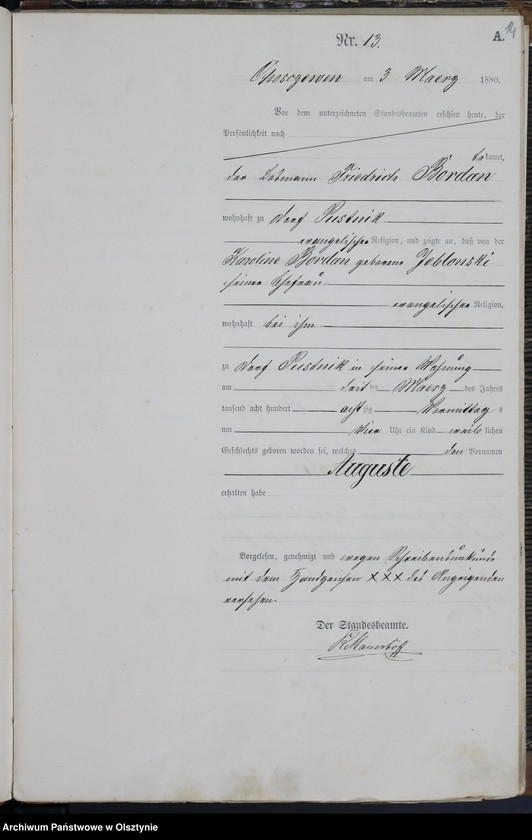 Nr. 13.
A.
14
am 3 Maerz 1880.
Vor dem unterzeichneten Standesbeamten erschien heute, der
Persönlichkeit nach
bekannt,
der Losmann Friedrich Bordan
wohnhaft zu Dorf Pustnik
evangelischer Religion, und zeigte an, daß von der
Karoline Bordan geborene Joblonski
seiner Ehefrau
evangelischer Religion,
wohnhaft bei ihm
zu Dorf Pustnik in seiner Wohnung
am drei ten Maerz des Jahres
tausend acht hundert achtzig Vormittags
um vier Uhr ein Kind weiblichen
Geschlechts geboren worden sei, welches den Vornamen
Auguste
erhalten habe
Vorgelesen, genehmigt und wegen Schreibensunkunde
mit dem Handzeichen XXX des Anzeigenden
versehen.
Der Standesbeamte.
Archiwum Państwowe w Olsztynie